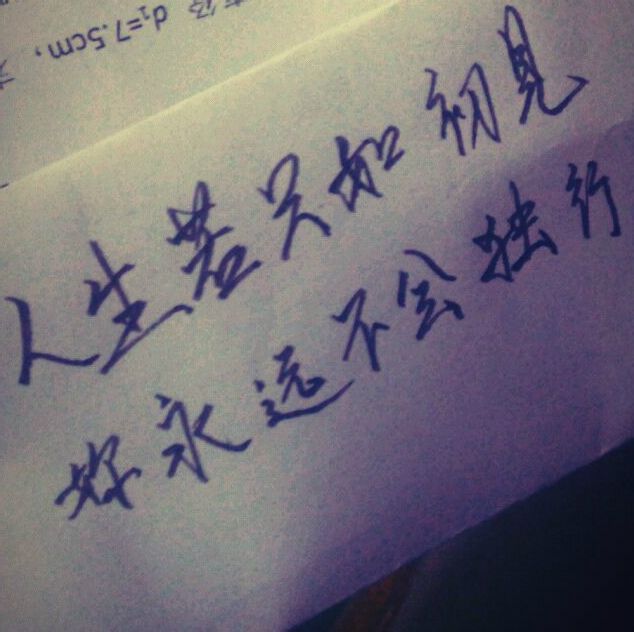 d₁=7.5cm，
人生若只如初見
好永远不会独行